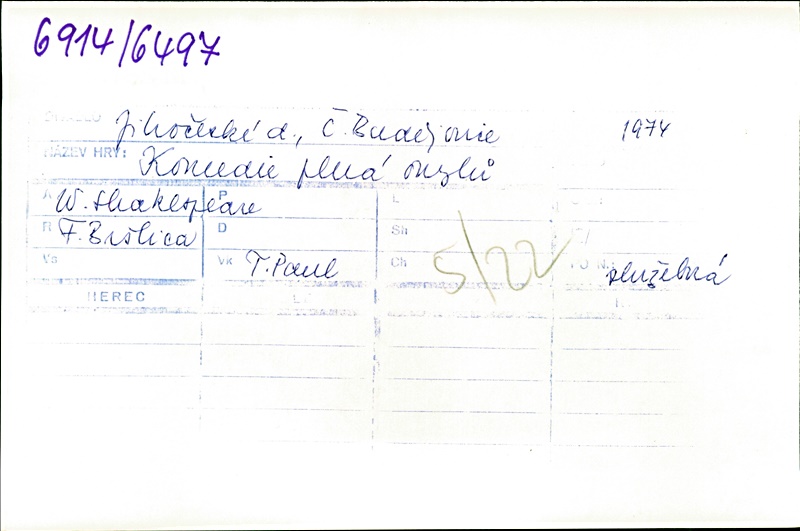 6914/6497
DIVADLO Jihočeské d., Č. Budějovice 1974
NÁZEV HRY: Komedie plná omylů
A W. Shakespeare P L
R F. Bršlica D Sh
Vs Vk T. Paul Ch 5/22 služebná
HEREC